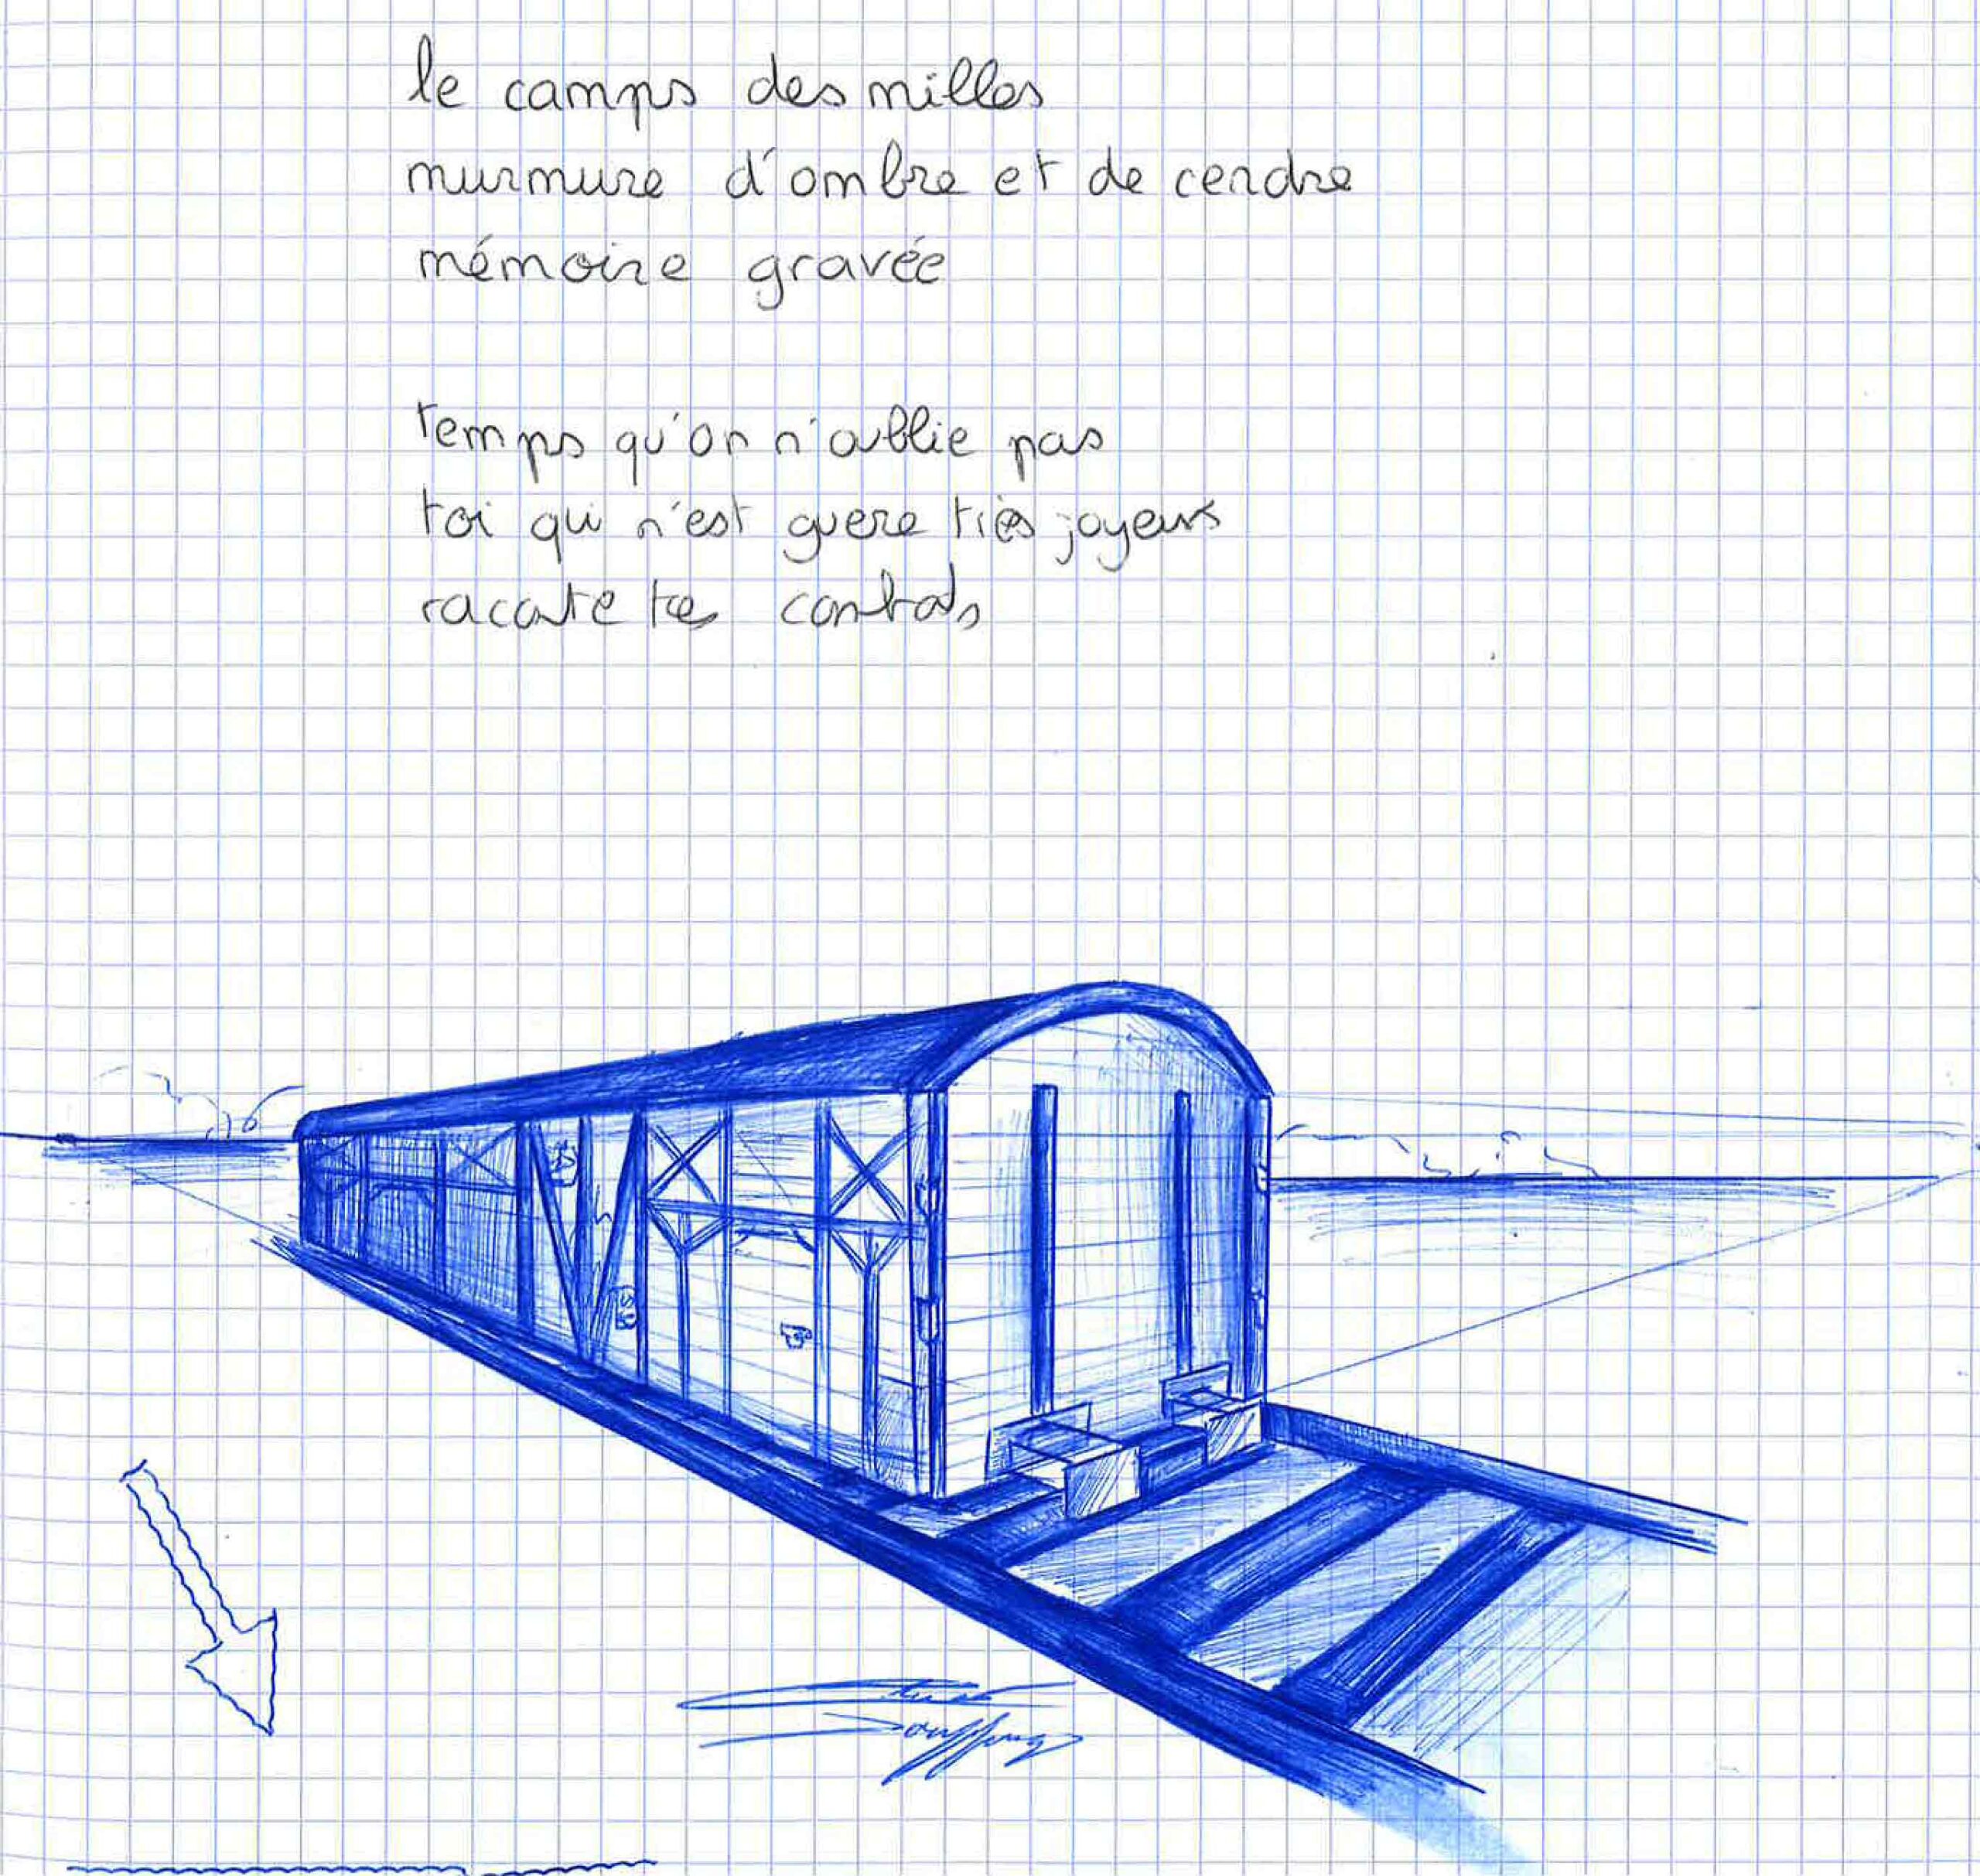 le camps des milles
murmure d'ombre et de cendre
mémoire gravée
temps qu'on n'oublie pas
toi qui n'est guere très joyeux
racorte tes combats